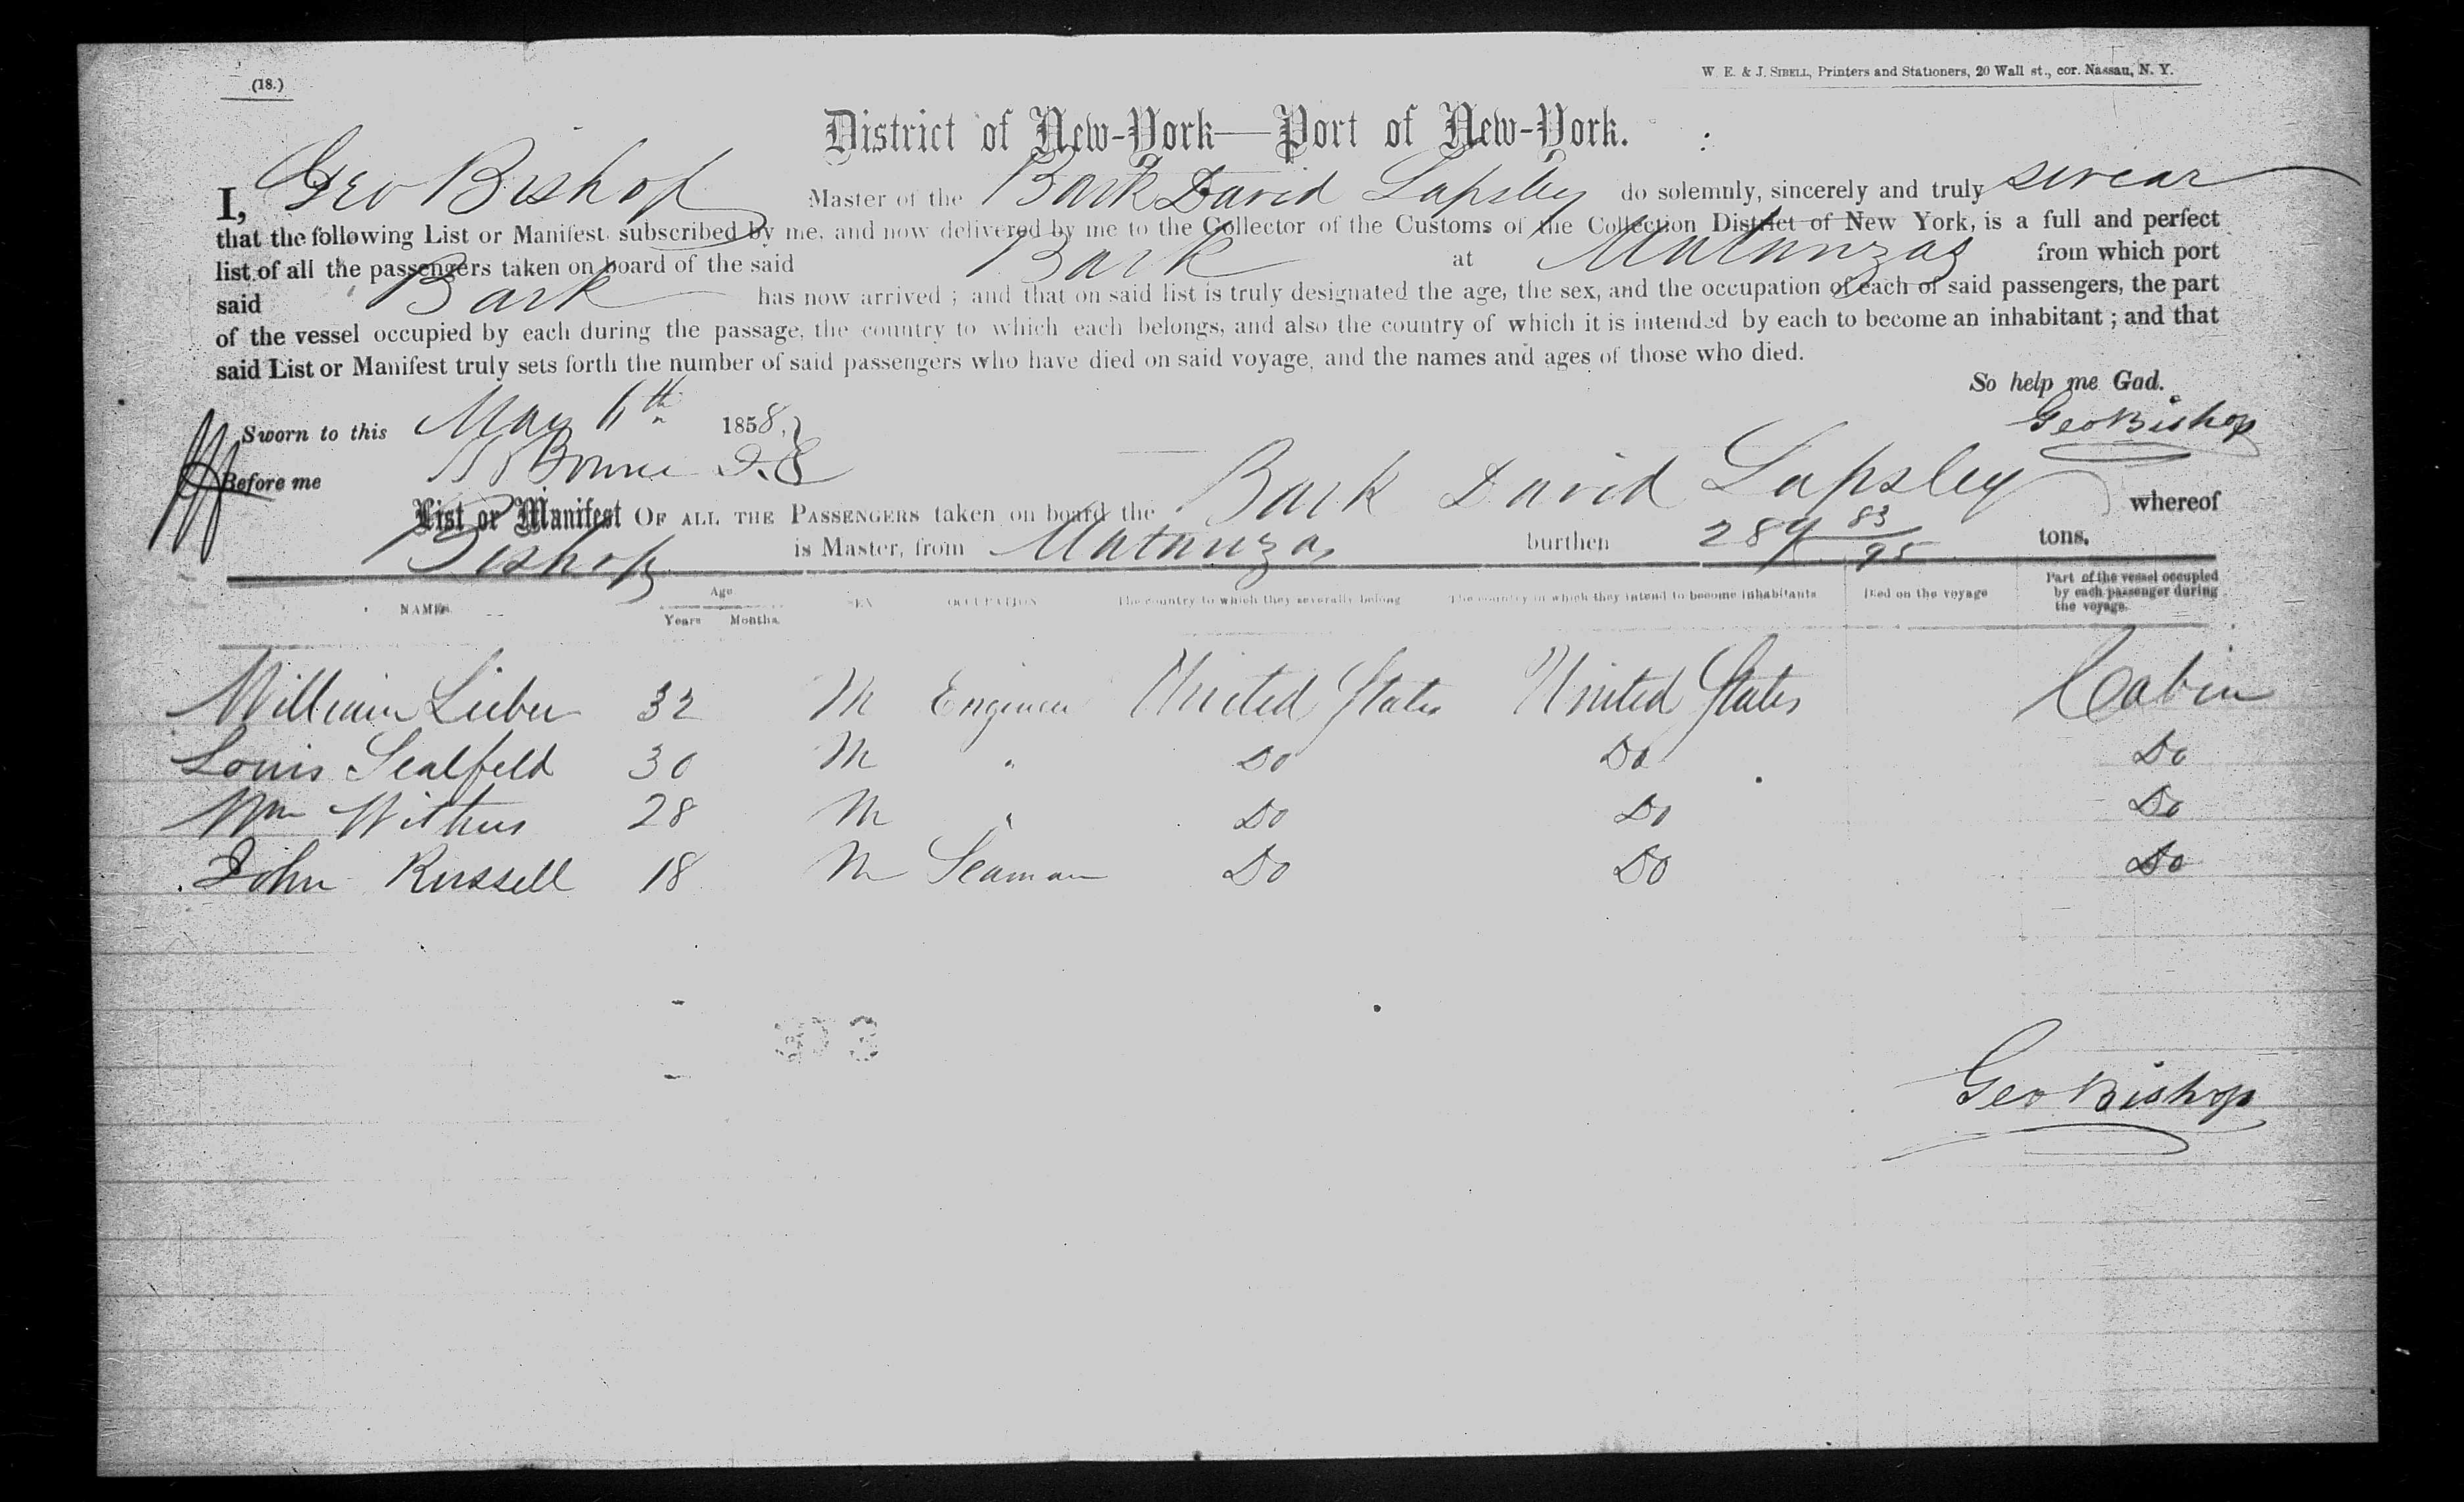 (18.)
W. E. & J. SIBELL, Printers and Stationers, 20 Wall st., cor. Nassau, N. Y.
District of New-York—Port of New-York.
I, Geo Bishop Master of the Bark David Lapsley do solemnly, sincerely and truly swear
that the following List or Manifest subscribed by me, and now delivered by me to the Collector of the Customs of the Collection District of New York, is a full and perfect
list of all the passengers taken on board of the said Bark at Matanzas from which port
said Bark has now arrived ; and that on said list is truly designated the age, the sex, and the occupation of each of said passengers, the part
of the vessel occupied by each during the passage, the country to which each belongs, and also the country of which it is intended by each to become an inhabitant ; and that
said List or Manifest truly sets forth the number of said passengers who have died on said voyage, and the names and ages of those who died.
So help me God.
Sworn to this May 6th 1858, Geo Bishop
Before me
List or Manifest OF ALL THE PASSENGERS taken on board the Bark David Lapsley whereof
Bishop is Master, from Matanzas burthen 289 83/95 tons.
NAMES. Age Years Months. SEX OCCUPATION The country to which they severally belong The country in which they intend to become inhabitants Died on the voyage Part of the vessel occupied by each passenger during the voyage.
William Lieber 32 M Engineer United States United States Cabin
Louis Sealfeld 30 M " Do Do Do
Wm Withus 28 M " Do Do Do
John Russell 18 M Seaman Do Do Do
Geo Bishop